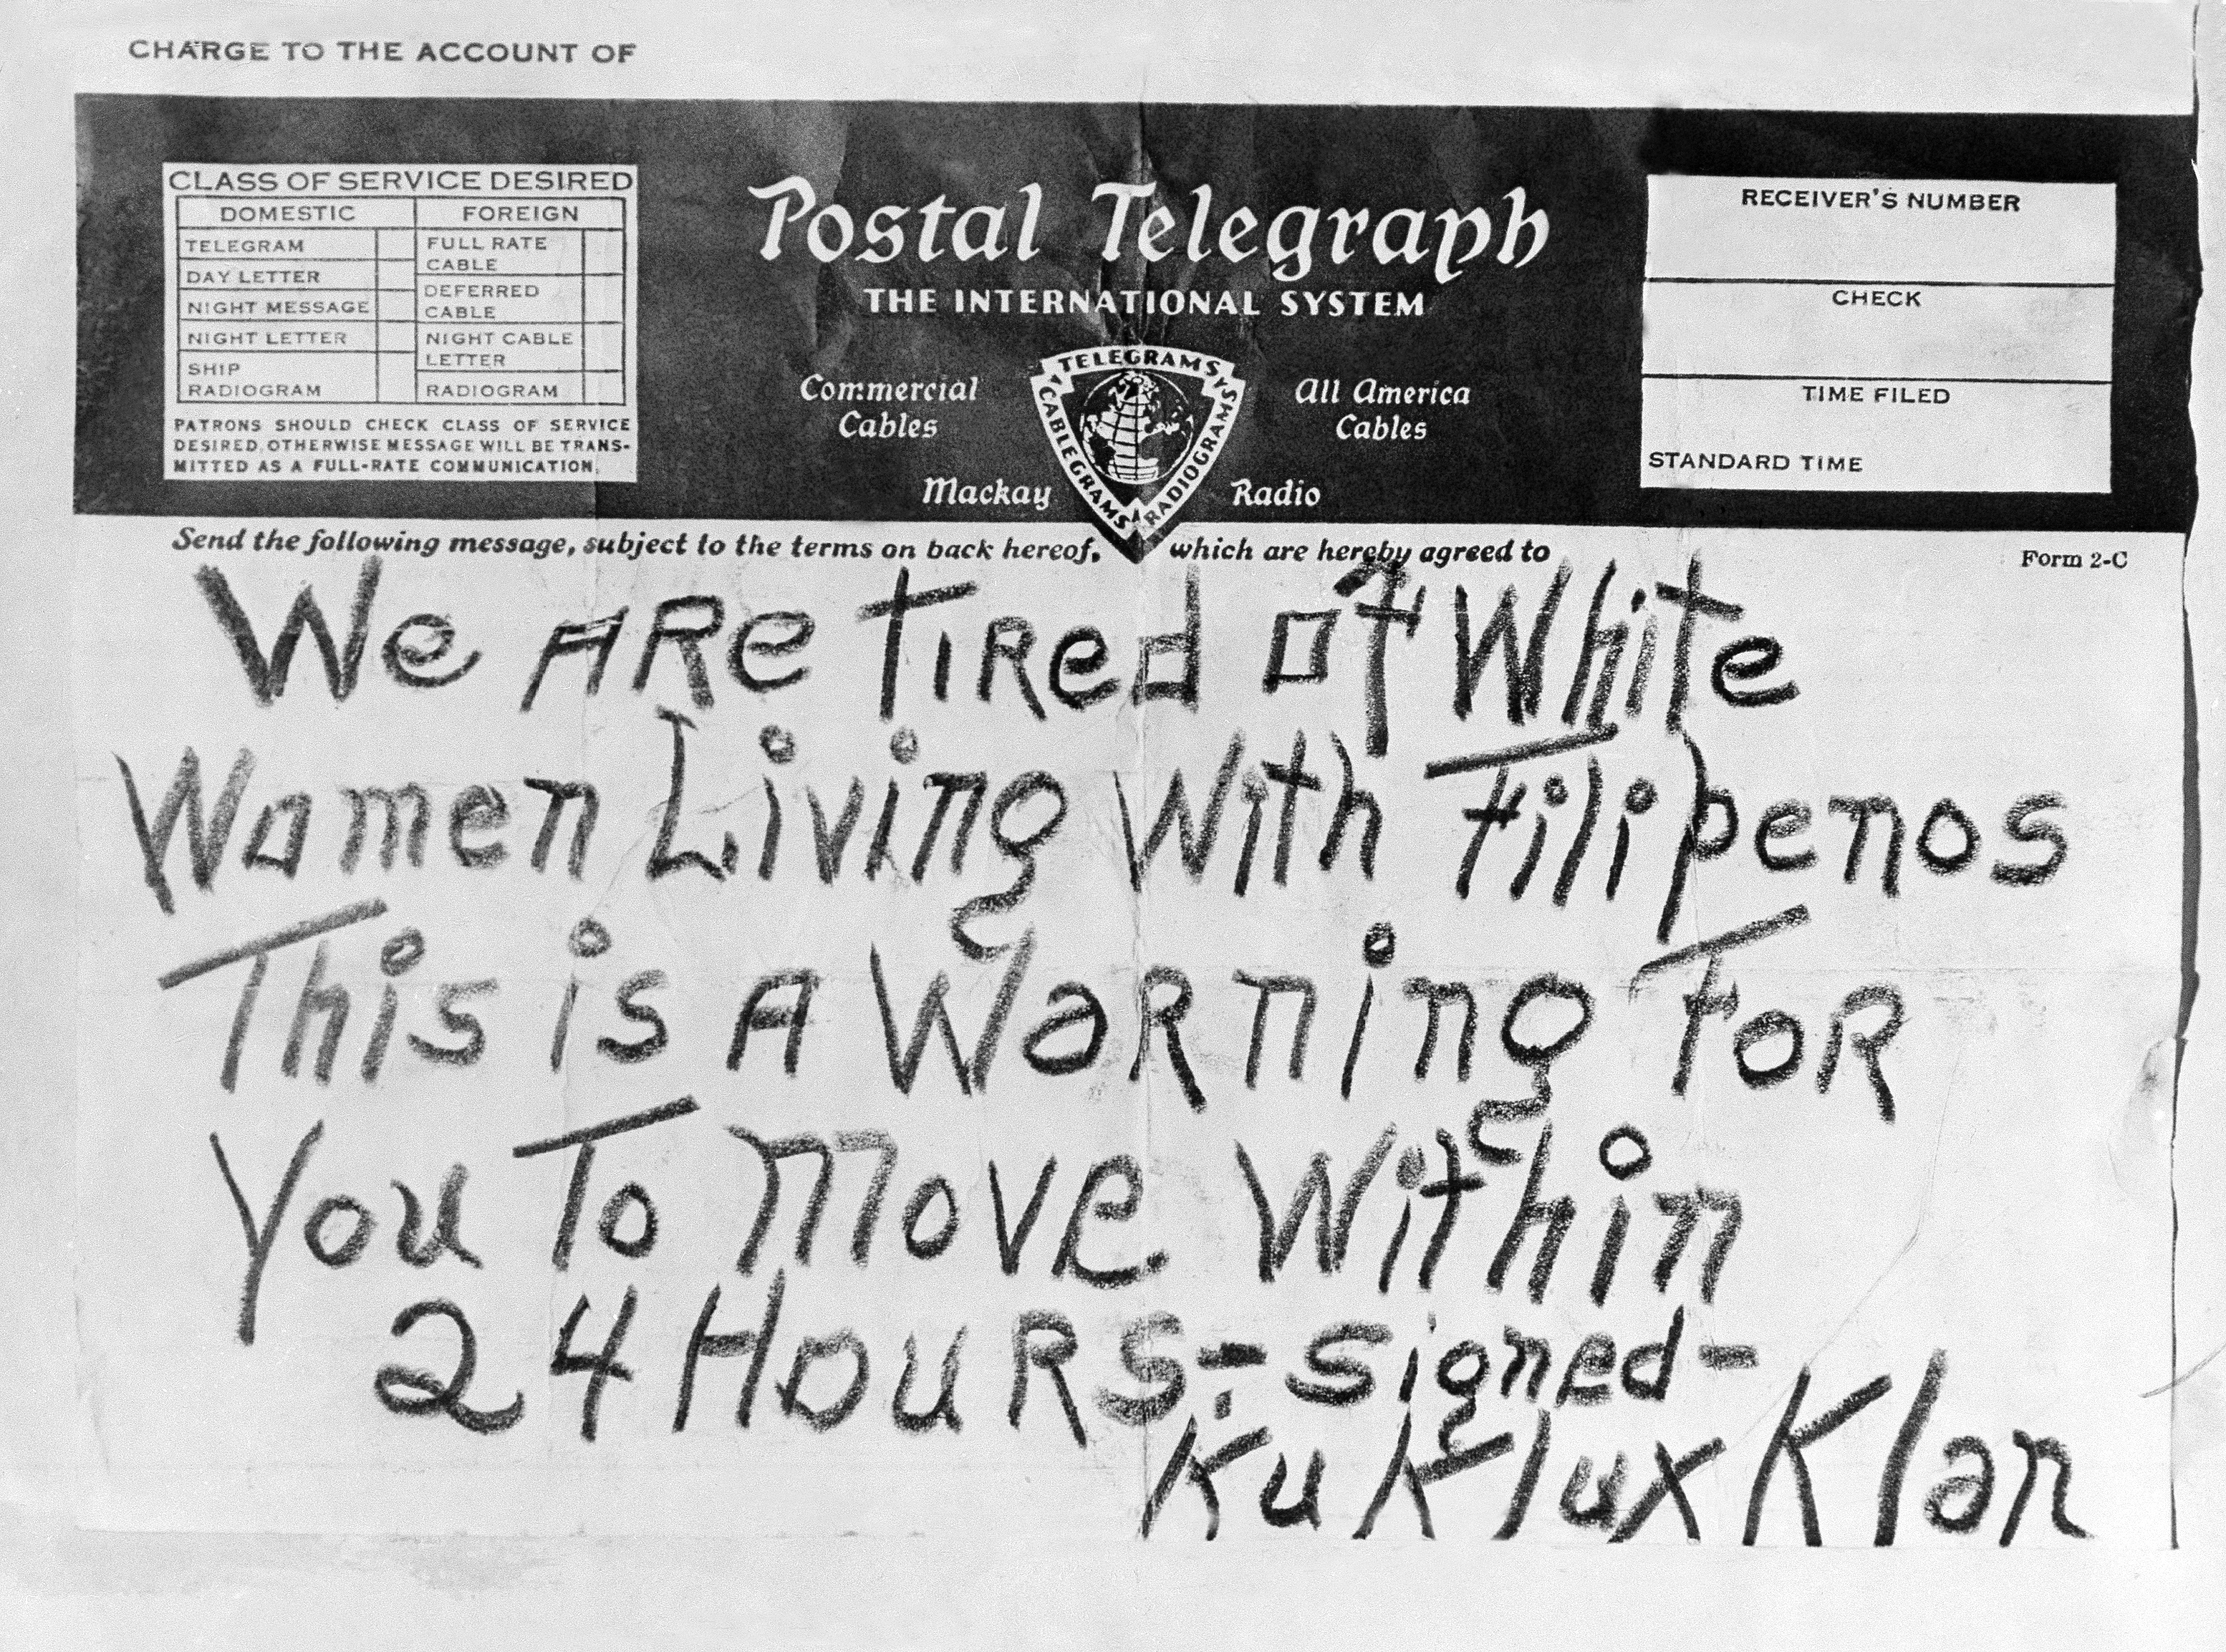 CHARGE TO THE ACCOUNT OF
CLASS OF SERVICE DESIRED
DOMESTIC FOREIGN
TELEGRAM FULL RATE CABLE
DAY LETTER DEFERRED CABLE
NIGHT MESSAGE NIGHT CABLE LETTER
NIGHT LETTER RADIOGRAM
SHIP RADIOGRAM
PATRONS SHOULD CHECK CLASS OF SERVICE
DESIRED, OTHERWISE MESSAGE WILL BE TRANS-
MITTED AS A FULL-RATE COMMUNICATION.
Postal Telegraph
THE INTERNATIONAL SYSTEM
Commercial Cables
All America Cables
Mackay Radio
TELEGRAMS
CABLEGRAMS
RADIOGRAMS
RECEIVER'S NUMBER
CHECK
TIME FILED
STANDARD TIME
Send the following message, subject to the terms on back hereof, which are hereby agreed to
Form 2-C
We ARe TIRed of White
Women Living With Filipenos
This is A Warning FoR
You To Move Within
24 HouRs-signed-
Ku Klux Klan